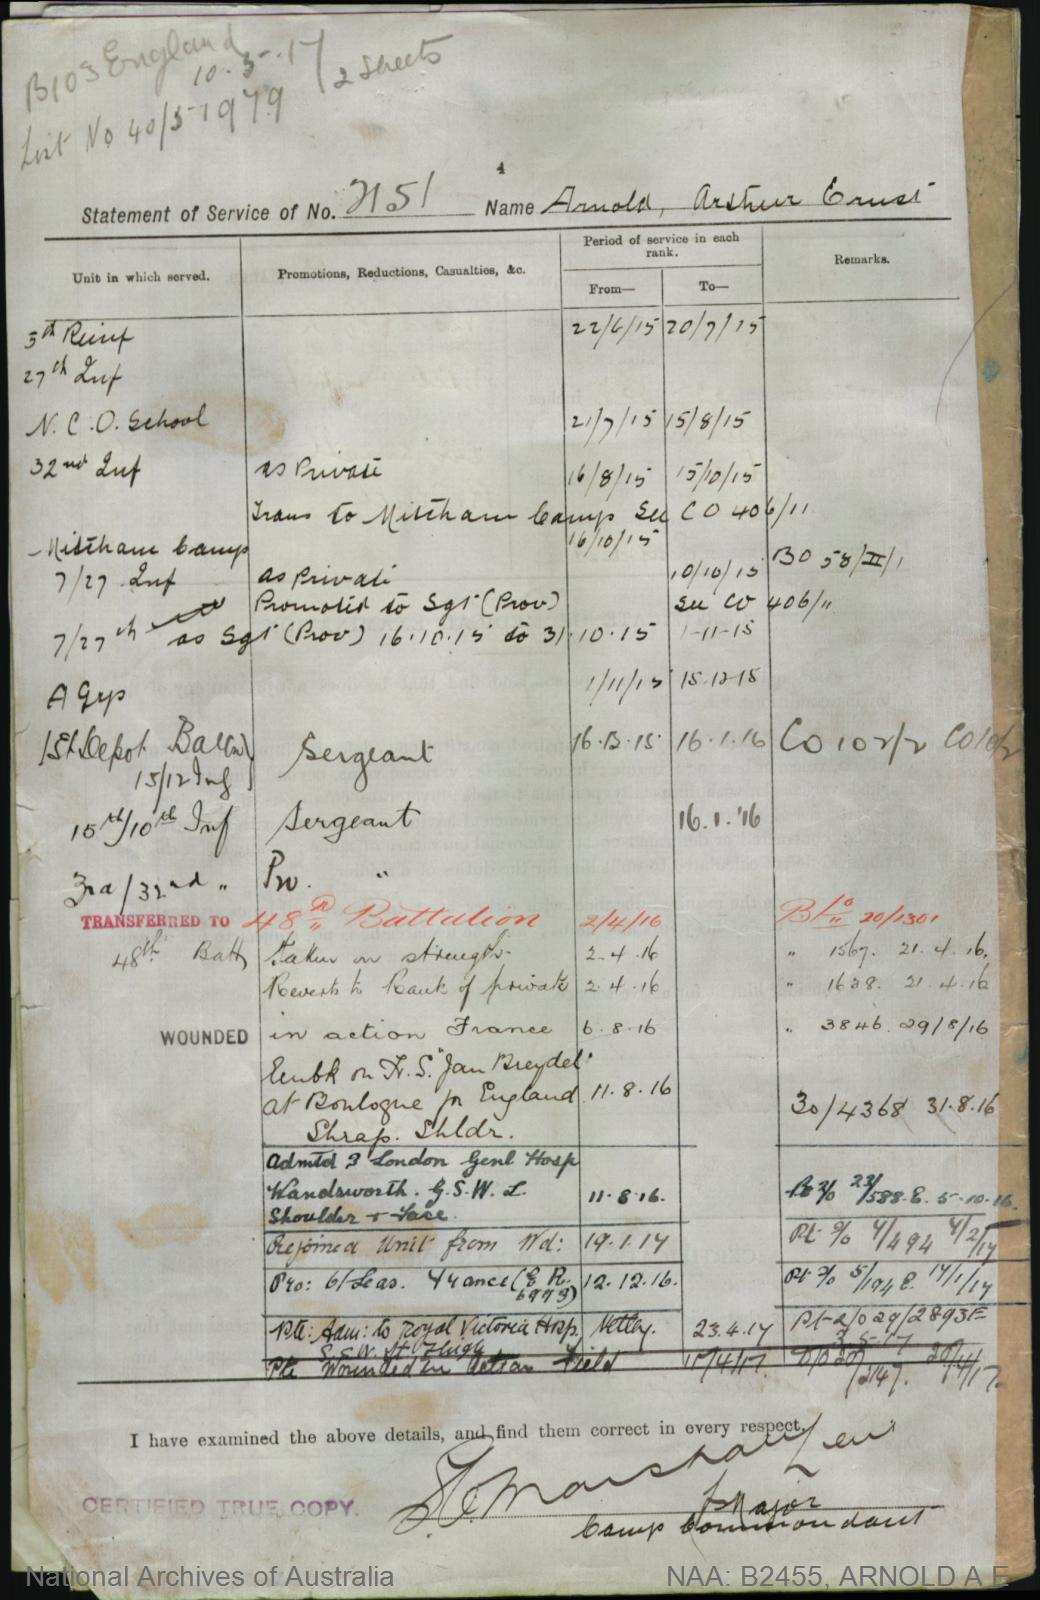 B103 England
10.5.17 / 2 sheets
List No 40/5 1979
4
Statement of Service of No. 2151 Name Arnold, Arthur Ernest
Unit in which served. Promotions, Reductions, Casualties, &c. Period of service in each rank. Remarks.
From— To—
5th Reinf 22/6/15 20/7/15
27th Inf
N.C.O. School 21/7/15 15/8/15
32nd Inf as Private 16/8/15 15/10/15
Trans to Mitcham Camp See CO 406/11
Mitcham Camp 16/10/15
7/27 Inf as Private 10/10/15 BO 58/II/1
Promoted to Sgt (Prov) See CO 406/11
7/27th as Sgt (Prov) 16.10.15 to 31.10.15 1-11-15
A Gyp 1/11/15 15.12.15
1st Depot Battn 15/12 Inf Sergeant 16.1.16 CO 102/2
15th/10th Inf Sergeant 16.1.'16
3rd/32nd " Pro. "
TRANSFERRED TO 48th Battalion 2/4/16 20/1301
48th Batt Taken on strength 2.4.16 " 1567. 21.4.16.
Reverts to Rank of private 2.4.16 " 1628. 21.4.16
WOUNDED in action France 6.8.16 " 3846. 29/8/16
Embk on H.S. "Jan Breydel"
at Boulogne for England 11.8.16 30/4368 31.8.16
Shrap. Shldr.
Admtd 3 London Genl Hosp
Wandsworth. G.S.W. L. 11.8.16. 23/588.E. 5.10.16.
Shoulder & Face.
Rejoined Unit from Wd: 19.1.17 Pt % 4/494 4/2/17
Pro: O/Seas. France (E.R. 6973) 12.12.16. Pt % 5/194 E. 14/1/17
Pte: Adm: to Royal Victoria Hosp. Netley. 23.4.17 Pt 2/0 29/2893E
3.5.17
Thigh
Pte Wounded in Action Field 11/4/17.
I have examined the above details, and find them correct in every respect.
Major
Camp Commandant
CERTIFIED TRUE COPY.
National Archives of Australia NAA: B2455, ARNOLD A E